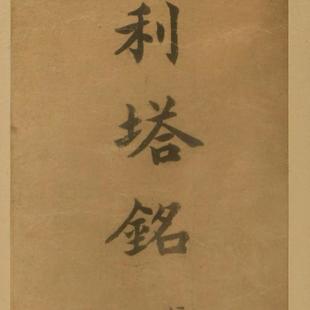 利塔銘